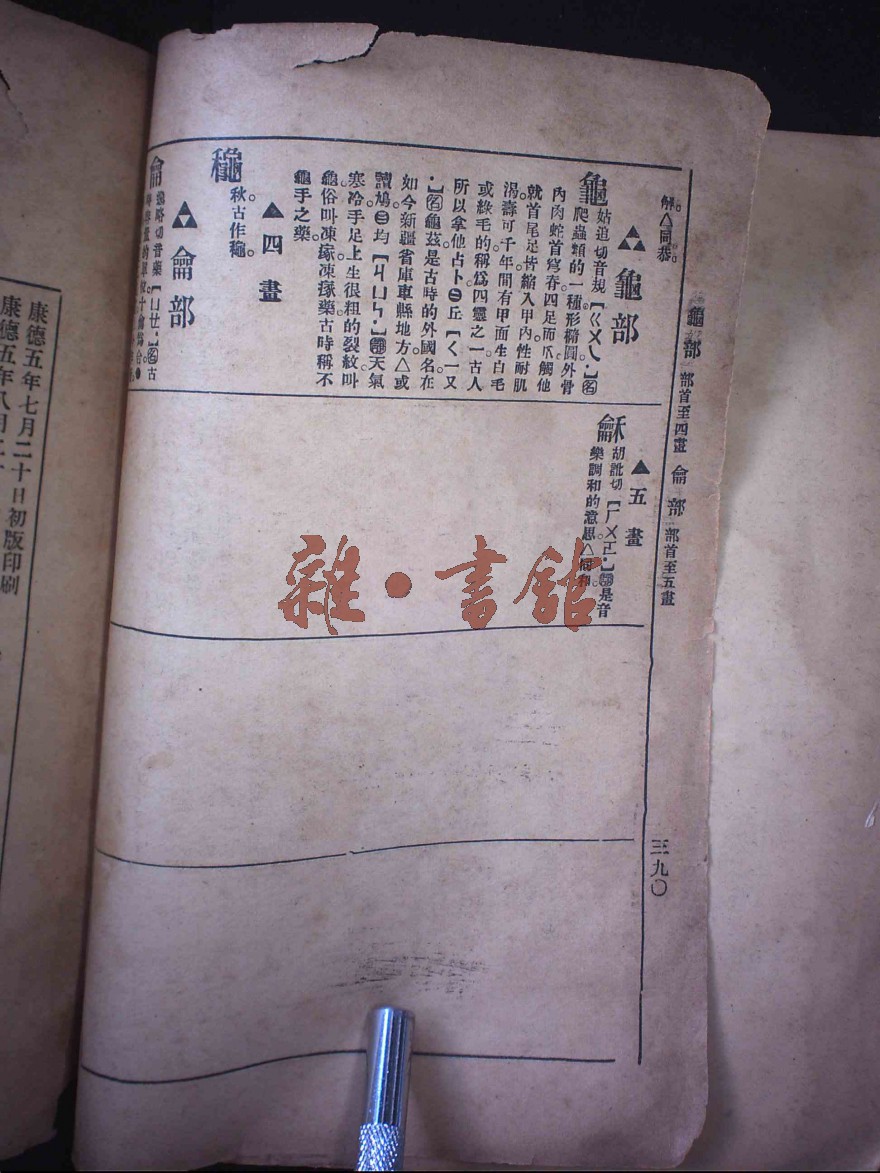 龜部 部首至四畫 龠部 部首至五畫
三九〇
解。△同恭。
▲▲▲龜部
龜 姑逍切音規【ㄍㄨㄟ·】名
爬蟲類的一種形橢圓外骨
內肉蛇首穹脊四足而爪觸他
就首尾足皆縮入甲內性耐肌
渴壽可千年間有甲面生白毛
或綠毛的稱爲四靈之一古人
所以拿他占卜㊁丘【ㄑㄧㄡ
·】名龜茲是古時的外國名在
如今新疆省庫車縣地方△或
讀鳩。㊂均【ㄐㄩㄣ·】天氣
寒冷手足上生很粗的裂紋叫
龜俗叫凍瘃凍瘃藥古時稱不
龜手之藥
▲四畫
龝
秋。古作龝。
▲▲▲龠部
龠
切音藥【ㄩㄝ·】名古
▲五畫
龢 胡訛切【ㄏㄨㄛ·】是音
樂調和的意思△同和。
雜·書舘
康德五年七月二十日初版印刷
康德五年八月